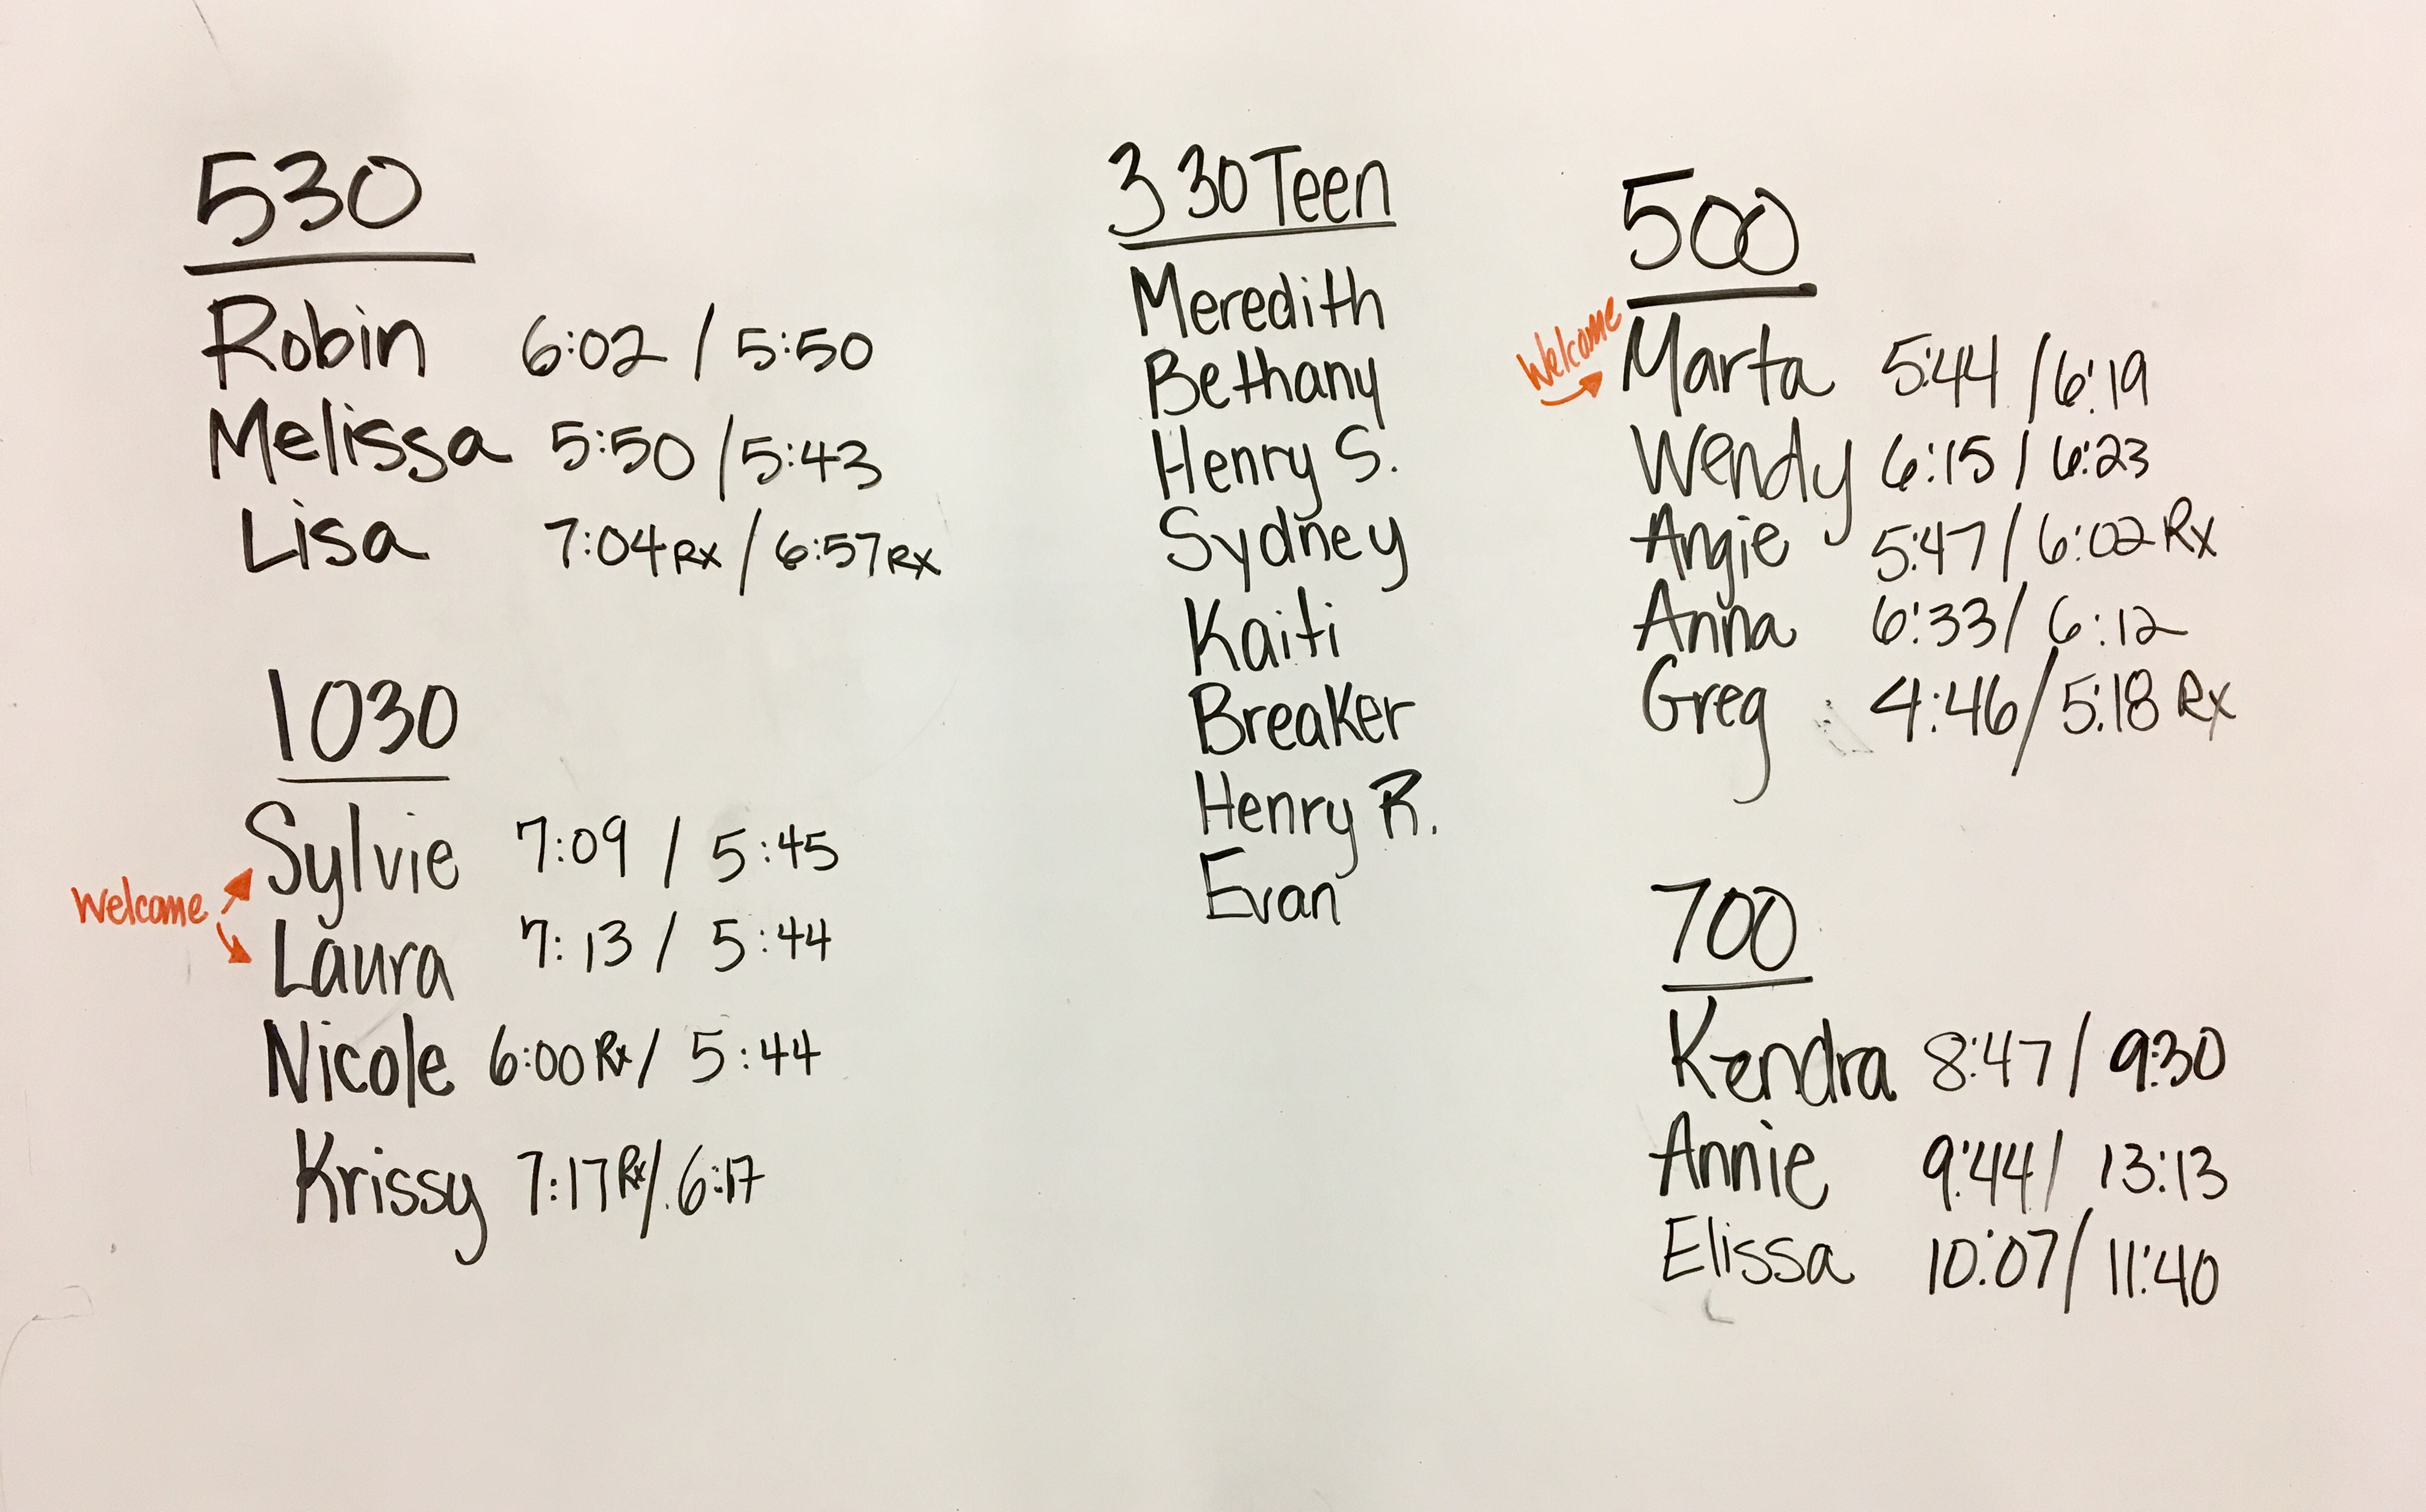 530
Robin 6:02 / 5:50
Melissa 5:50 / 5:43
Lisa 7:04 Rx / 6:57 Rx
1030
Sylvie 7:09 / 5:45
Welcome
Laura 7:13 / 5:44
Nicole 6:00 Rx / 5:44
Krissy 7:17 Rx / 6:17
330 Teen
Meredith
Bethany
Henry S.
Sydney
Kaiti
Breaker
Henry R.
Evan
500
Welcome
Marta 5:44 / 6:19
Wendy 6:15 / 6:23
Angie 5:47 / 6:02 Rx
Anna 6:33 / 6:12
Greg 4:46 / 5:18 Rx
700
Kendra 8:47 / 9:30
Annie 9:44 / 13:13
Elissa 10:07 / 11:40